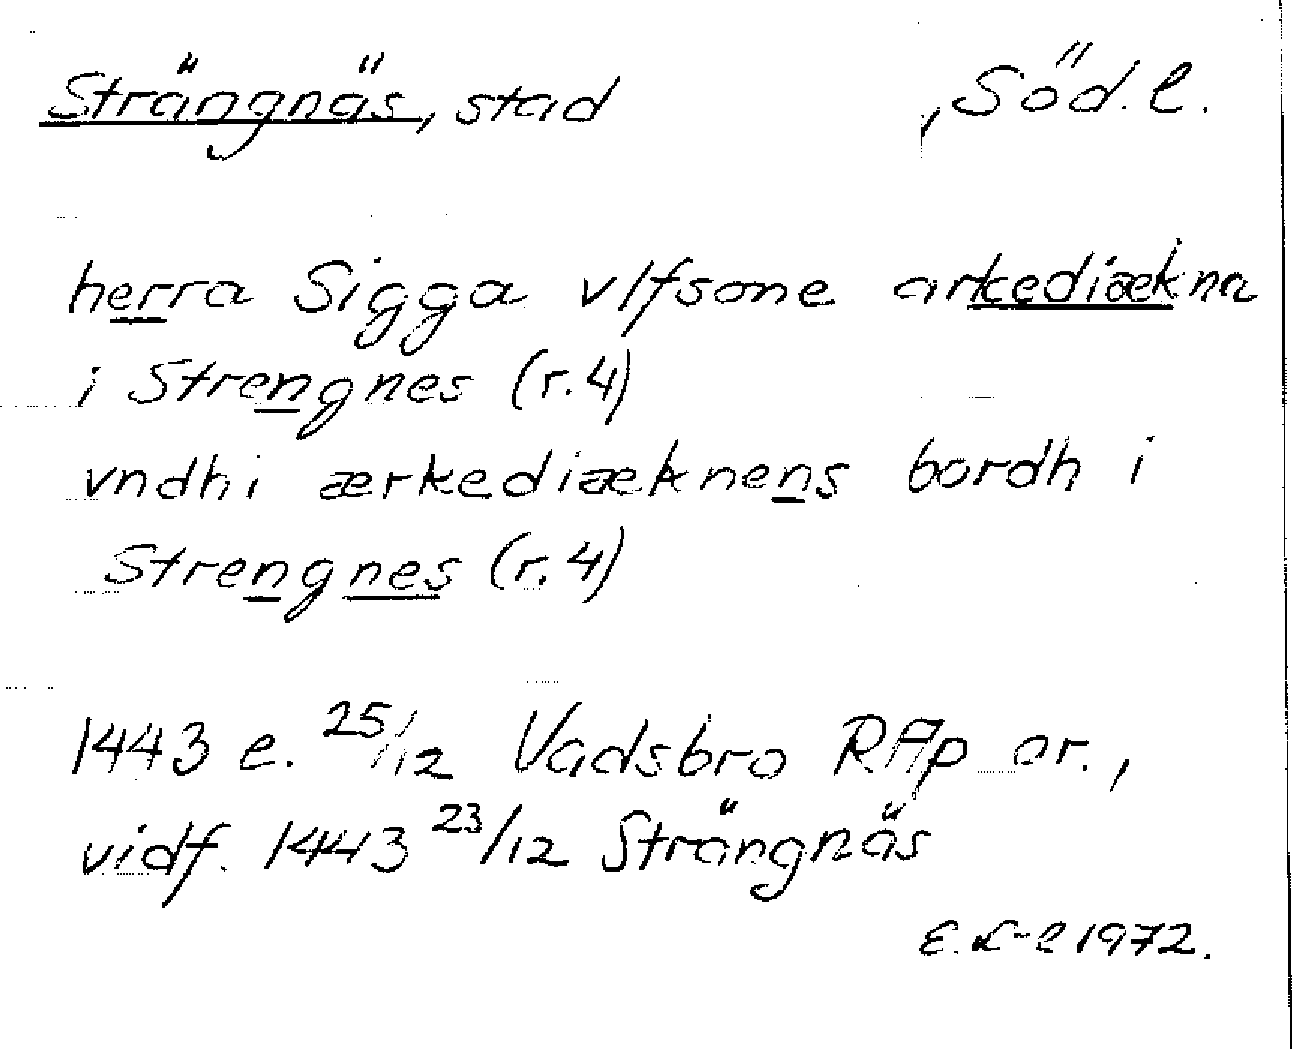 Strängnäs, stad , Söd. l.
herra Sigga vlfsone arkediækna
i Strengnes (r. 4)
vndhi ærkediæknens bordh i
Strengnes (r. 4)
1443 e. 25/12 Vadsbro RAp or.,
vidf. 1443 23/12 Strängnäs
E. L-l 1972.